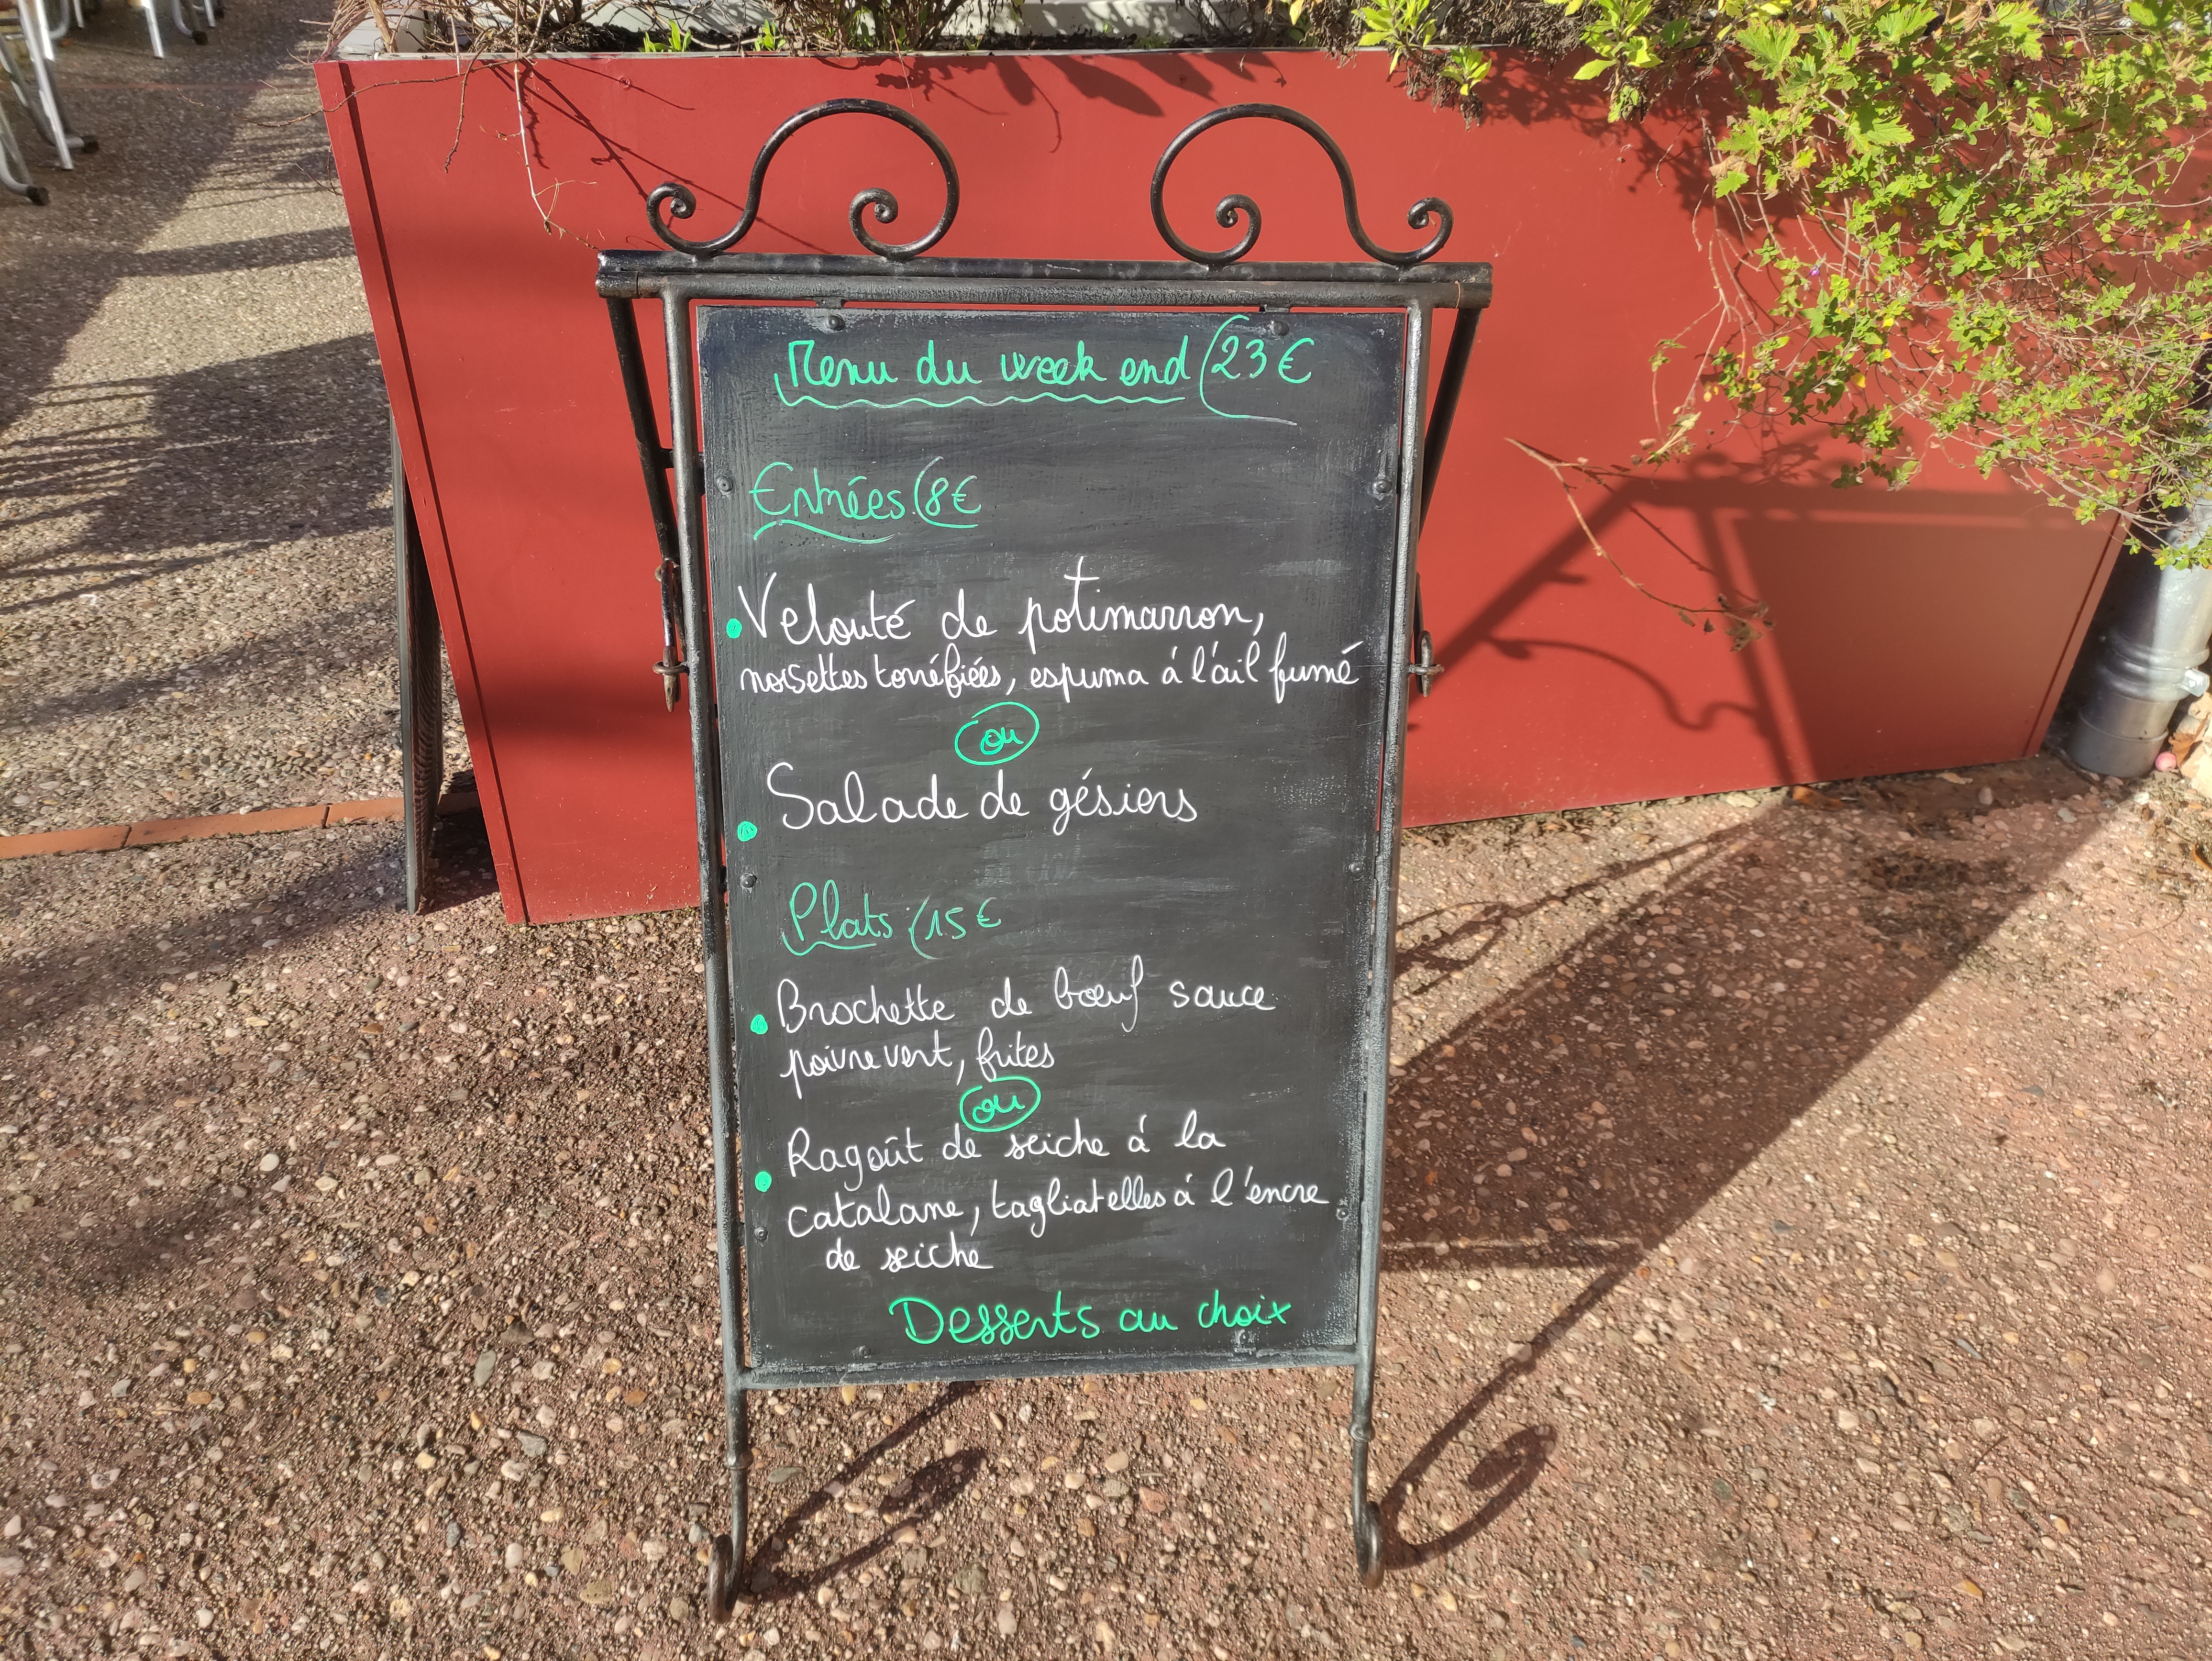 Menu du week end (23 €
Entrées (8 €
Velouté de potimarron,
noisettes torréfiées, espuma à l'ail fumé
ou
Salade de gésiers
Plats (15 €
Brochette de bœuf sauce
poivre vert, frites
ou
Ragoût de seiche à la
catalane, tagliatelles à l'encre
de seiche
Desserts au choix